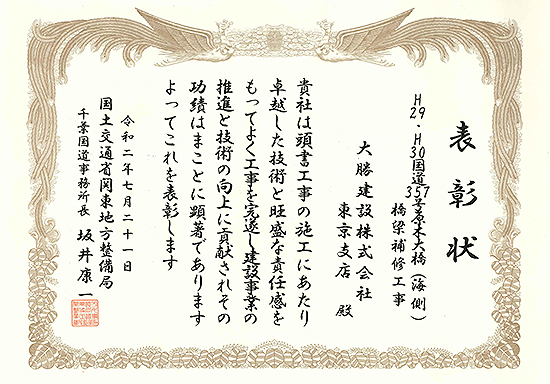 表彰状
H29・H30国道357号原木大橋(海側)
橋梁補修工事
大勝建設株式会社
東京支店 殿
貴社は頭書工事の施工にあたり
卓越した技術と旺盛な責任感を
もってよく工事を完遂し建設事業の
推進と技術の向上に貢献されその
功績はまことに顕著であります
よってこれを表彰します
令和二年七月二十一日
国土交通省関東地方整備局
千葉国道事務所長 坂井康一